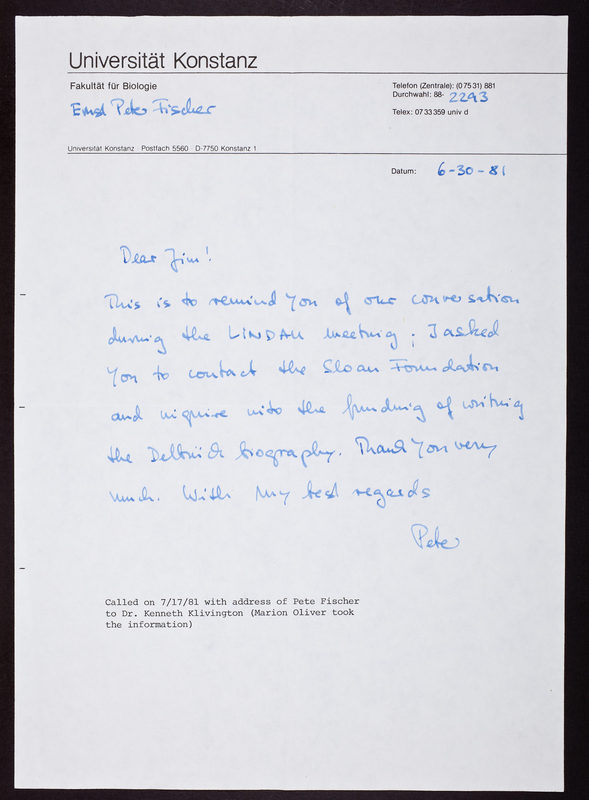 Universität Konstanz
Fakultät für Biologie
Ernst Peter Fischer
Telefon (Zentrale): (0 75 31) 881
Durchwahl: 88- 2293
Telex: 07 33 359 univ d
Universität Konstanz · Postfach 5560 · D-7750 Konstanz 1
Datum: 6-30-81
Dear Jim!
This is to remind you of our conversation
during the LINDAU meeting; I asked
you to contact the Sloan Foundation
and inquire into the funding of writing
the Delbrück biography. Thank you very
much. With my best regards
Pete
Called on 7/17/81 with address of Pete Fischer
to Dr. Kenneth Klivington (Marion Oliver took
the information)